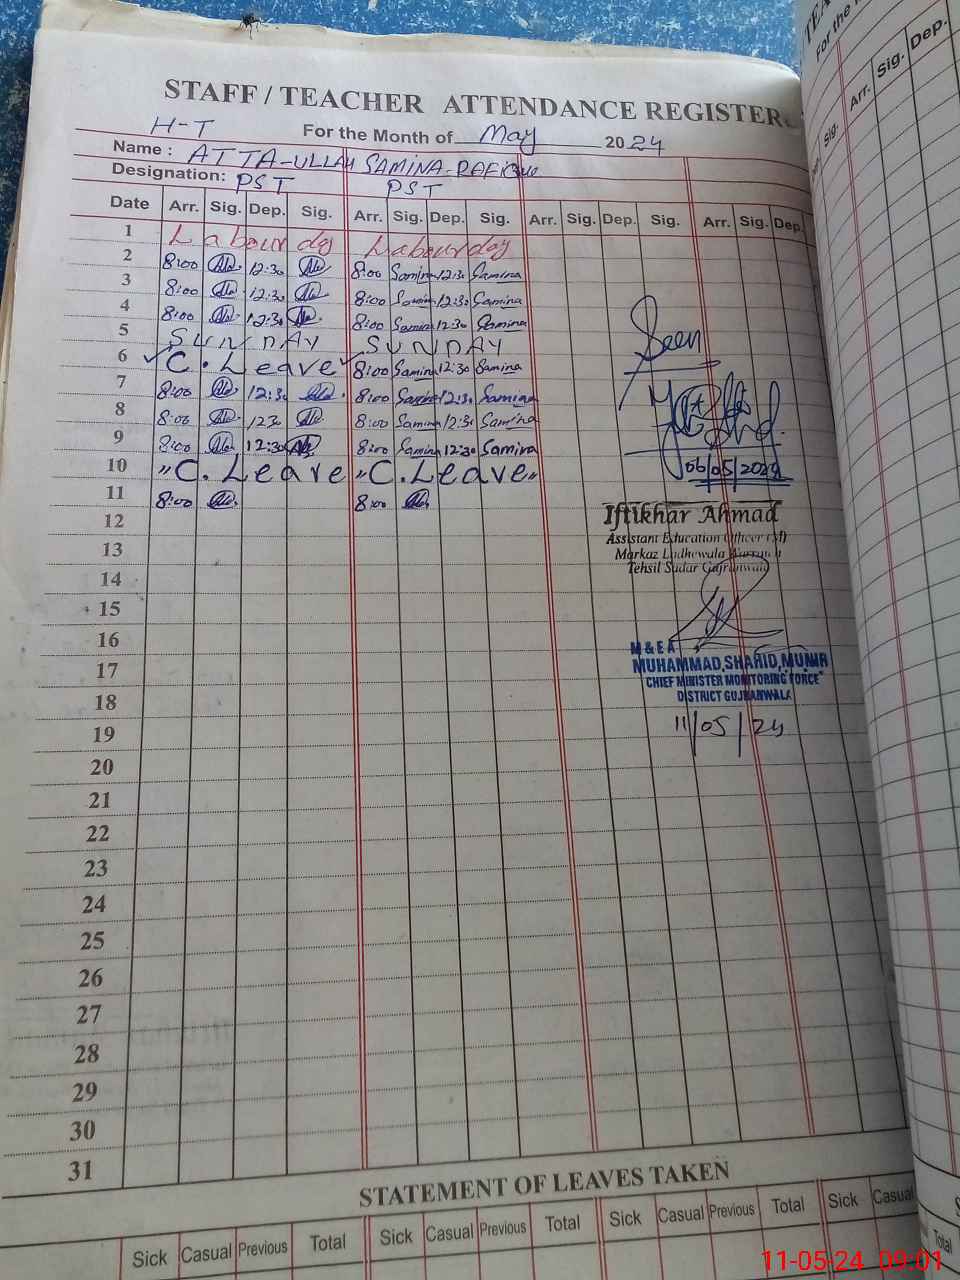 STAFF / TEACHER ATTENDANCE REGISTER
H-T For the Month of May 2024
Name : ATTA-ULLAH SAMINA-RAFIQUE
Designation: PST PST
Date Arr. Sig. Dep. Sig. Arr. Sig. Dep. Sig. Arr. Sig. Dep. Sig. Arr. Sig. Dep.
1 Labour day Labour day
2 8:00 12:30 8:00 Samina 12:30 Samina
3 8:00 12:30 8:00 Samina 12:30 Samina
4 8:00 12:30 8:00 Samina 12:30 Samina
5 SUNDAY SUNDAY
6 C. Leave 8:00 Samina 12:30 Samina
7 8:00 12:30 8:00 Samina 12:30 Samina
8 8:00 12:30 8:00 Samina 12:30 Samina
9 8:00 12:30 8:00 Samina 12:30 Samina
10 "C. Leave "C. Leave"
11 8:00 8:00
12
13
14
15
16
17
18
19
20
21
22
23
24
25
26
27
28
29
30
31
Seen
06/05/2024
Iftikhar Ahmad
Assistant Education Officer (M)
Markaz Ladhewala Warraich
Tehsil Sadar Gujranwala
M & E A
MUHAMMAD SHAHID MUNIR
CHIEF MINISTER MONITORING FORCE
DISTRICT GUJRANWALA
11/05/24
STATEMENT OF LEAVES TAKEN
Sick Casual Previous Total Sick Casual Previous Total Sick Casual Previous Total Sick Casual
For the
Sig. Arr. Sig. Dep.
Total
11-05-24 09:01